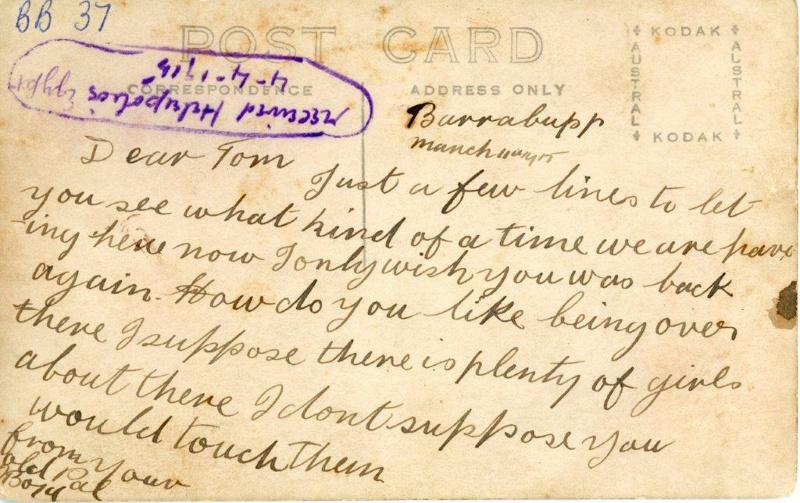 BB 37
POST CARD
CORRESPONDENCE
ADDRESS ONLY
KODAK
AUSTRAL
AUSTRAL
KODAK
received Heliopolis
4-4-1916
Egypt
Barrabupp
Dear Tom
Just a few lines to let
you see what kind of a time we are hav
ing here now I only wish you was back
again. How do you like being over
there I suppose there is plenty of girls
about there I dont suppose you
would touch them
from your
old Pal